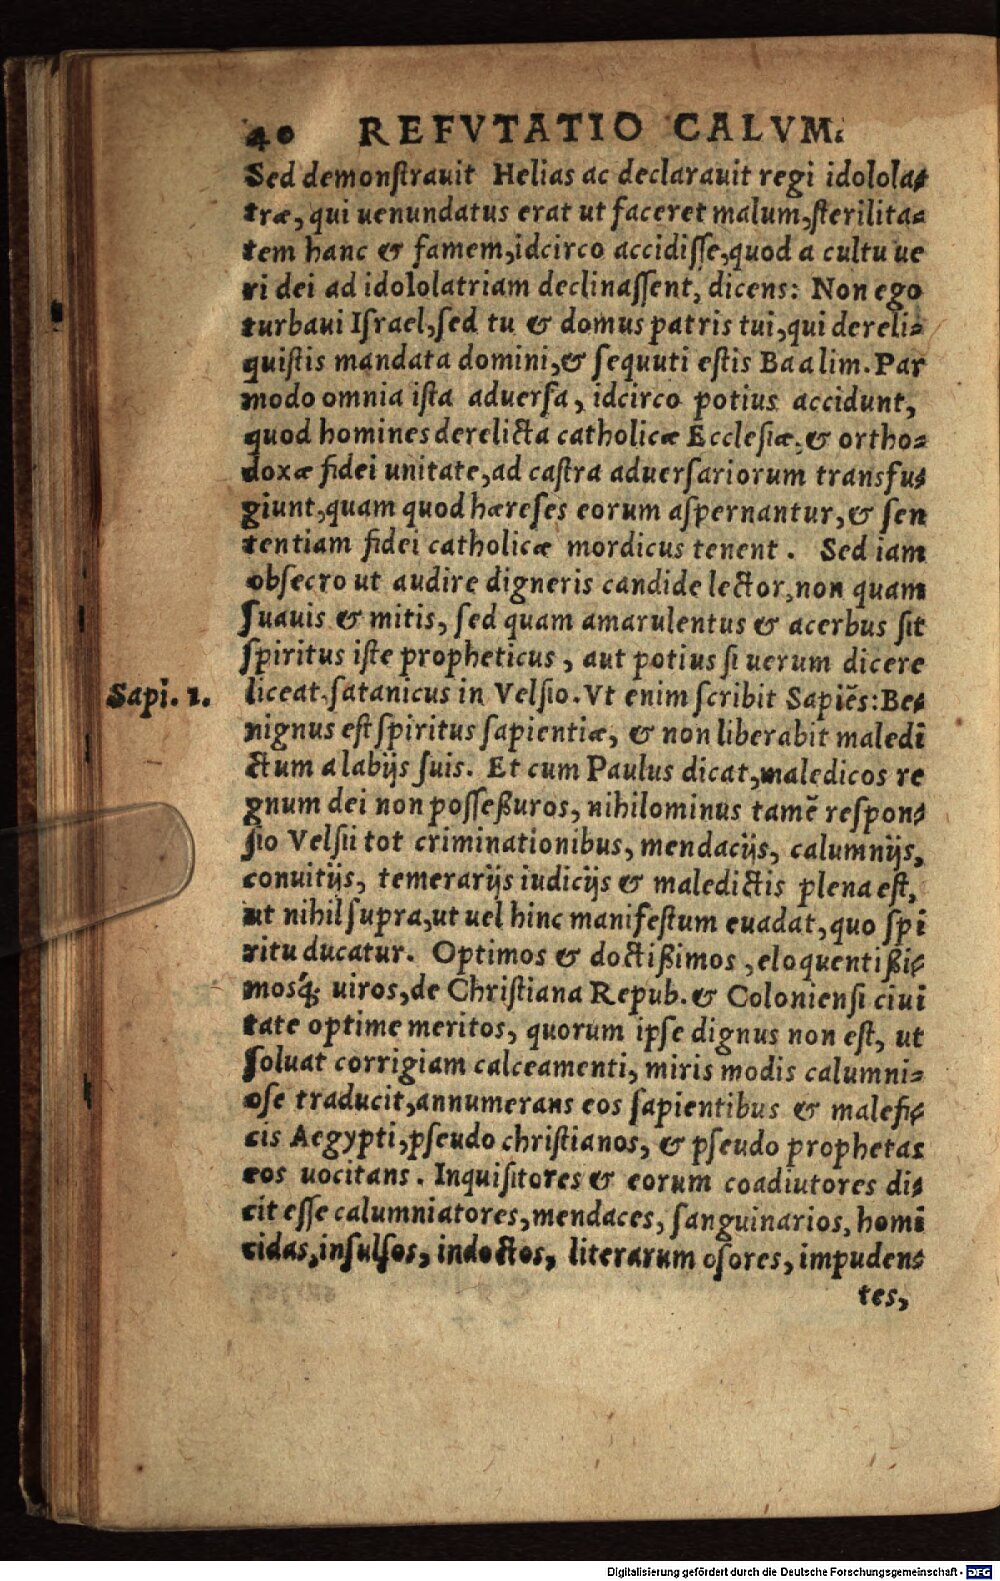 40 REFVTATIO CALVM.
Sed demonſtrauit Helias ac declarauit regi idolola-
træ, qui uenundatus erat ut faceret malum, ſterilita-
tem hanc & famem, idcirco accidiſſe, quod a cultu ue
ri dei ad idololatriam declinaſſent, dicens: Non ego
turbaui Iſrael, ſed tu & domus patris tui, qui dereli-
quiſtis mandata domini, & ſequuti eſtis Baalim. Par
modo omnia iſta aduerſa, idcirco potius accidunt,
quod homines derelicta catholicæ Eccleſiæ, & ortho-
doxæ fidei unitate, ad caſtra aduerſariorum transfu-
giunt, quam quod hæreſes eorum aſpernantur, & ſen
tentiam fidei catholicæ mordicus tenent. Sed iam
obſecro ut audire digneris candide lector, non quam
ſuauis & mitis, ſed quam amarulentus & acerbus ſit
ſpiritus iſte propheticus, aut potius ſi uerum dicere
Sapi. 1. liceat ſatanicus in Velſio. Vt enim ſcribit Sapiẽs: Be-
nignus eſt ſpiritus ſapientiæ, & non liberabit maledi
ctum a labijs ſuis. Et cum Paulus dicat, maledicos re
gnum dei non poſſeßuros, nihilominus tamẽ reſpon-
ſio Velſii tot criminationibus, mendacijs, calumnijs,
conuitijs, temerarijs iudicijs & maledictis plena eſt,
ut nihil ſupra, ut uel hinc manifeſtum euadat, quo ſpi
ritu ducatur. Optimos & doctißimos, eloquentißi-
mosq́; uiros, de Chriſtiana Repub. & Colonienſi ciui
tate optime meritos, quorum ipſe dignus non eſt, ut
ſoluat corrigiam calceamenti, miris modis calumni-
oſe traducit, annumerans eos ſapientibus & malefi-
cis Aegypti, pſeudo chriſtianos, & pſeudo prophetas
eos uocitans. Inquiſitores & eorum coadiutores di-
cit eſſe calumniatores, mendaces, ſanguinarios, homi
cidas, inſulſos, indoctos, literarum oſores, impuden-
tes,
Digitalisierung gefördert durch die Deutsche Forschungsgemeinschaft - DFG